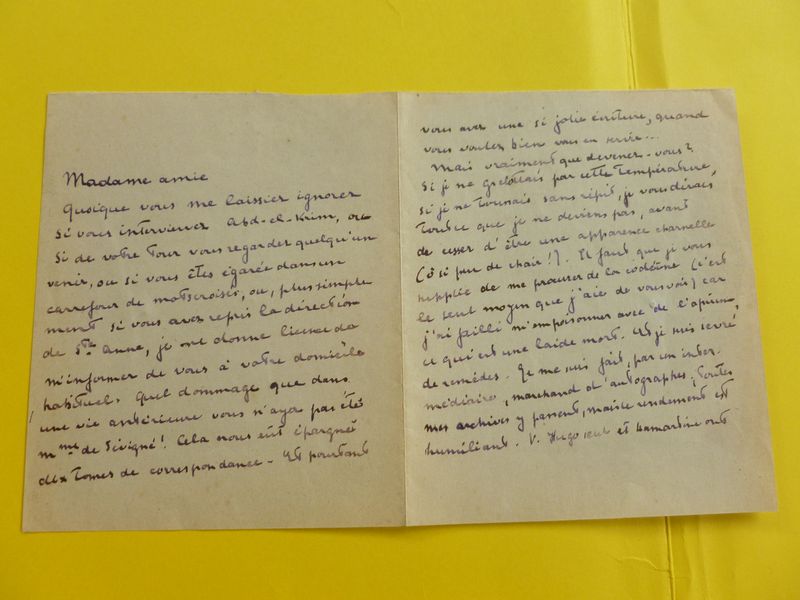 Madame amie
Quoique vous me laissier ignorer
si vous interviewez Abd-el-Krim, ou
si de votre Tour vous regarder quelqu'un
venir, ou si vous êtes égarée dans un
carrefour de mots croisés, ou, plus simple
ment si vous avez repris la direction
de Ste Anne, je me donne licence de
m'informer de vous à votre domicile
habituel. Quel dommage que dans
une vie antérieure vous n'ayez pas été
Mme de Sévigné! Cela nous eût épargné
dix tomes de correspondance - Et pourtant
vous avez une si jolie écriture, quand
vous voulez bien vous en servir...
Mais vraiment que devenez-vous?
Si je ne grelottais par cette température,
si je ne toussais sans répit, je vous dirais
tout ce que je ne deviens pas, avant
de cesser d'être une apparence charnelle
(ô si peu de chair!). Il faut que je vous
supplie de me procurer de la codéine (c'est
le seul moyen que j'aie de vous voir) car
j'ai failli m'empoisonner avec de l'opium,
ce qui est une laide mort. Et je suis sevré
de remèdes. Je me suis fait, par un inter-
médiaire, marchand d'autographes; toutes
mes archives y passent, mais le rendement est
humiliant. V. Hugo seul et Lamartine ont